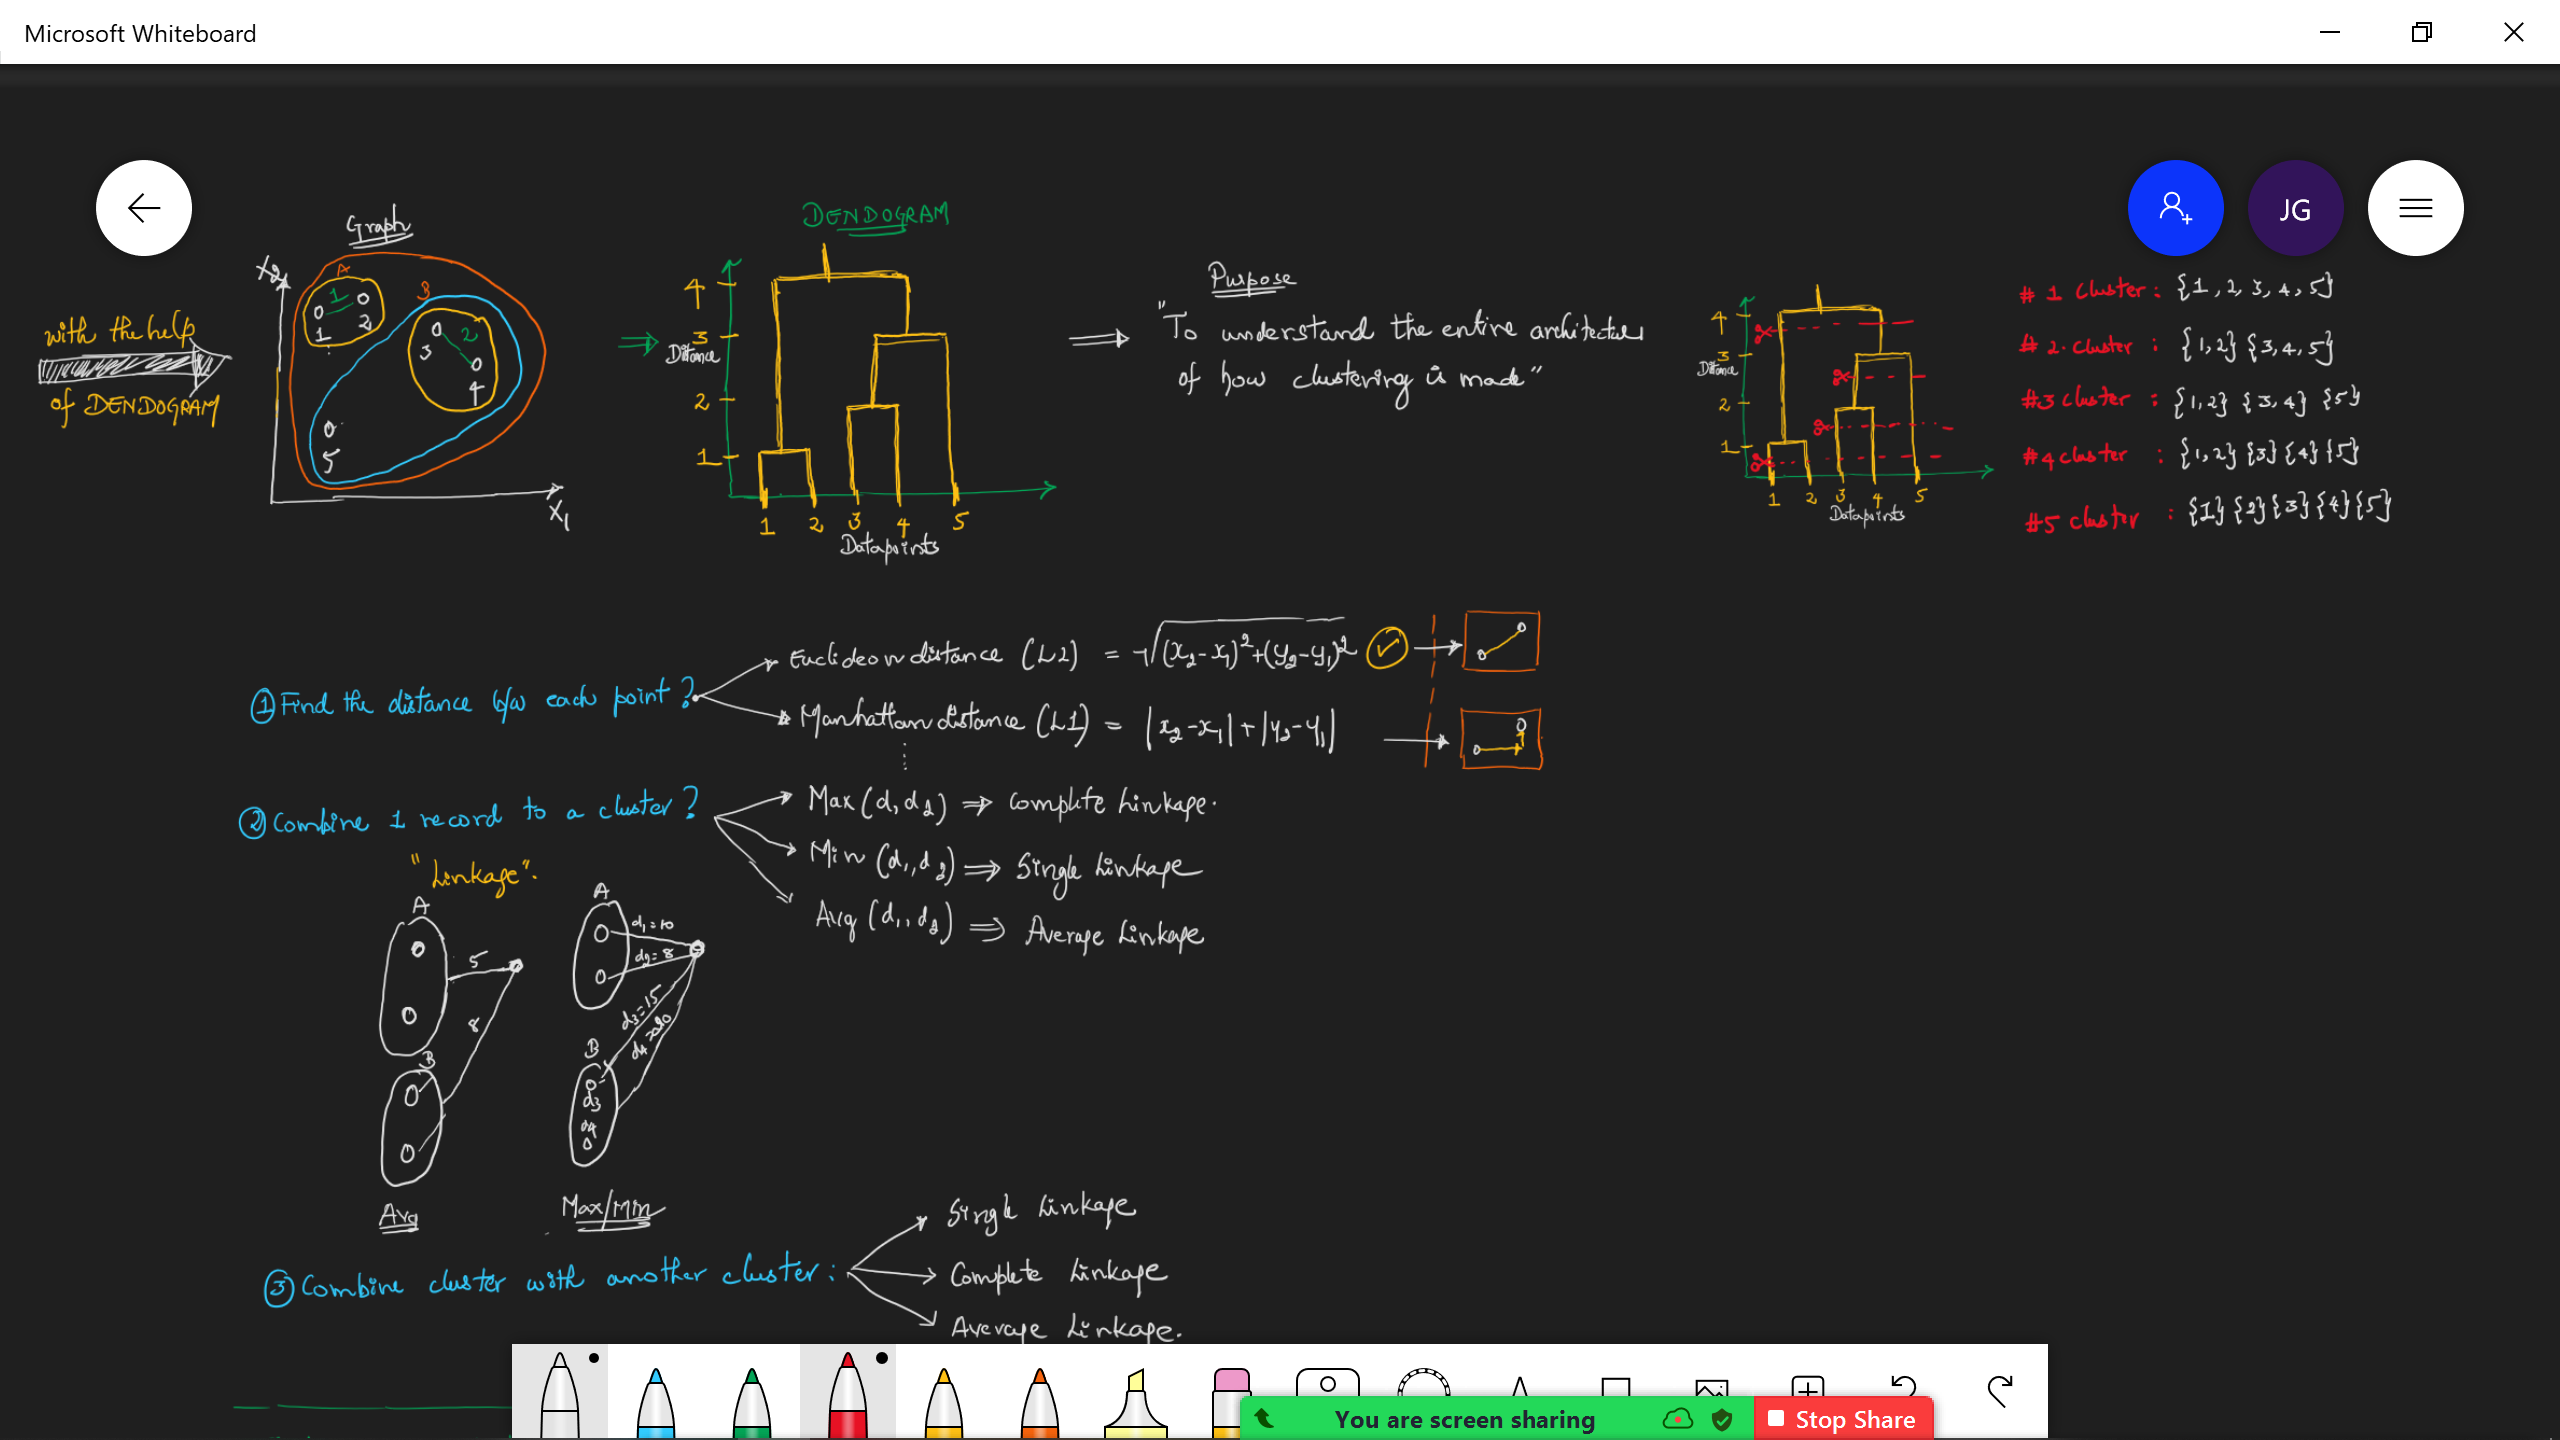 Microsoft Whiteboard
JG
with the help
of DENDOGRAM
Graph
X2
A
1
1
2
3
2
3
4
5
X1
DENDOGRAM
4
3
Distance
2
1
1 2 3 4 5
Datapoints
Purpose
"To understand the entire architecture
of how clustering is made"
4
3
Distance
2
1
1 2 3 4 5
Datapoints
# 1 cluster : {1, 2, 3, 4, 5}
# 2 cluster : {1, 2} {3, 4, 5}
#3 cluster : {1, 2} {3, 4} {5}
#4 cluster : {1, 2} {3} {4} {5}
#5 cluster : {1} {2} {3} {4} {5}
① Find the distance b/w each point?
Euclidean distance (L2) = √(x2-x1)²+(y2-y1)²
Manhattan distance (L1) = |x2-x1|+|y2-y1|
② Combine 1 record to a cluster?
Max (d1 d2) ⇒ Complete Linkage.
Min (d1, d2) ⇒ Single Linkage
Avg (d1, d2) ⇒ Average Linkage
"Linkage".
A
5
8
B
Avg
A
d1=10
d2=8
d3=15
d4=20
B
d3
d4
Max/Min
③ Combine cluster with another cluster :
Single Linkage
Complete Linkage
Average Linkage.
You are screen sharing
Stop Share